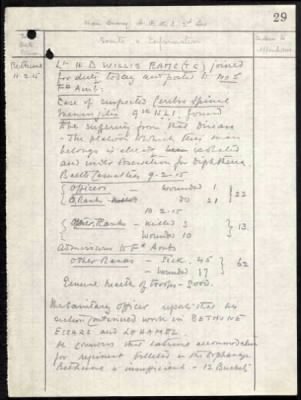 29
Place
Date
Hour
Events & Information
Bethune
11.2.15
Lt H D WILLIS RAMC (TC) joined
for duty today and posted to No 5
Fd Amb.
Case of suspected Cerebro Spinal
Meningitis 9th H.L.I. found
to be suffering from this Disease
- The platoon to which this man
belongs is already been isolated
and under observation for Diphtheria
Battle Casualties 9-2-15
Officers - wounded 1
O. Ranks do 21
22
10.2.15
Other Ranks - Killed 3
Wounded 10
13.
Admissions to Fd Ambs
Other Ranks - Sick. 45
- Wounded 17
62
General health of troops - Good.
The Sanitary Officer reports that his
section continued work in BETHUNE
ESSARS and LE HAMEL
He considers that latrine accommodation
for regiment billeted in the Orphanage
Bethune is insufficient - 12 Buckets